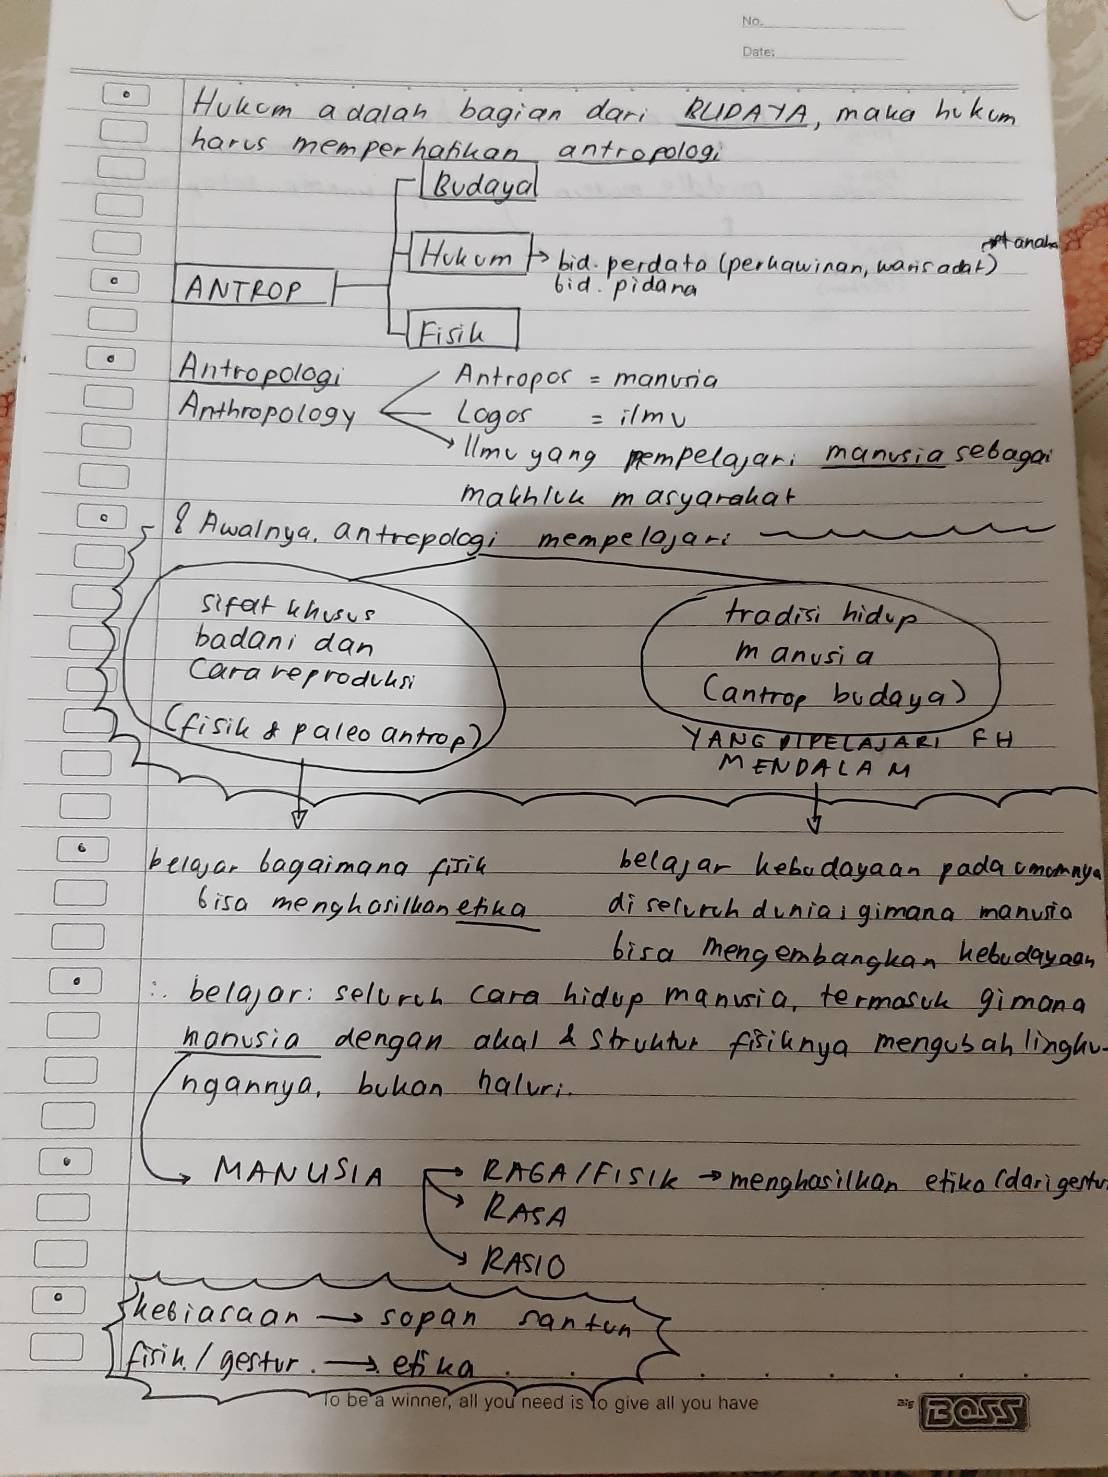 No.
Date:
Hukum adalah bagian dari BUDAYA, maka hukum
harus memperhatikan antropologi
Budaya
Hukum → bid. perdata (perkawinan, waris adat)
tanah
bid. pidana
ANTROP
Fisik
Antropologi
Anthropology
Antropos = manusia
Logos = ilmu
Ilmu yang mempelajari manusia sebagai
makhluk masyarakat
Awalnya, antropologi mempelajari
sifat khusus
badani dan
cara reproduksi
(fisik & paleo antrop)
tradisi hidup
manusia
(antrop budaya)
YANG DIPELAJARI FH
MENDALAM
belajar bagaimana fisik
bisa menghasilkan etika
belajar kebudayaan pada umumnya
di seluruh dunia; gimana manusia
bisa mengembangkan kebudayaan
∴ belajar: seluruh cara hidup manusia, termasuk gimana
manusia dengan akal & struktur fisiknya mengubah lingku-
ngannya, bukan naluri.
MANUSIA → RAGA/FISIK → menghasilkan etika (dari gestur
RASA
RASIO
kebiasaan → sopan santun
fisik / gestur. → etika
To be a winner, all you need is to give all you have
Big BOSS